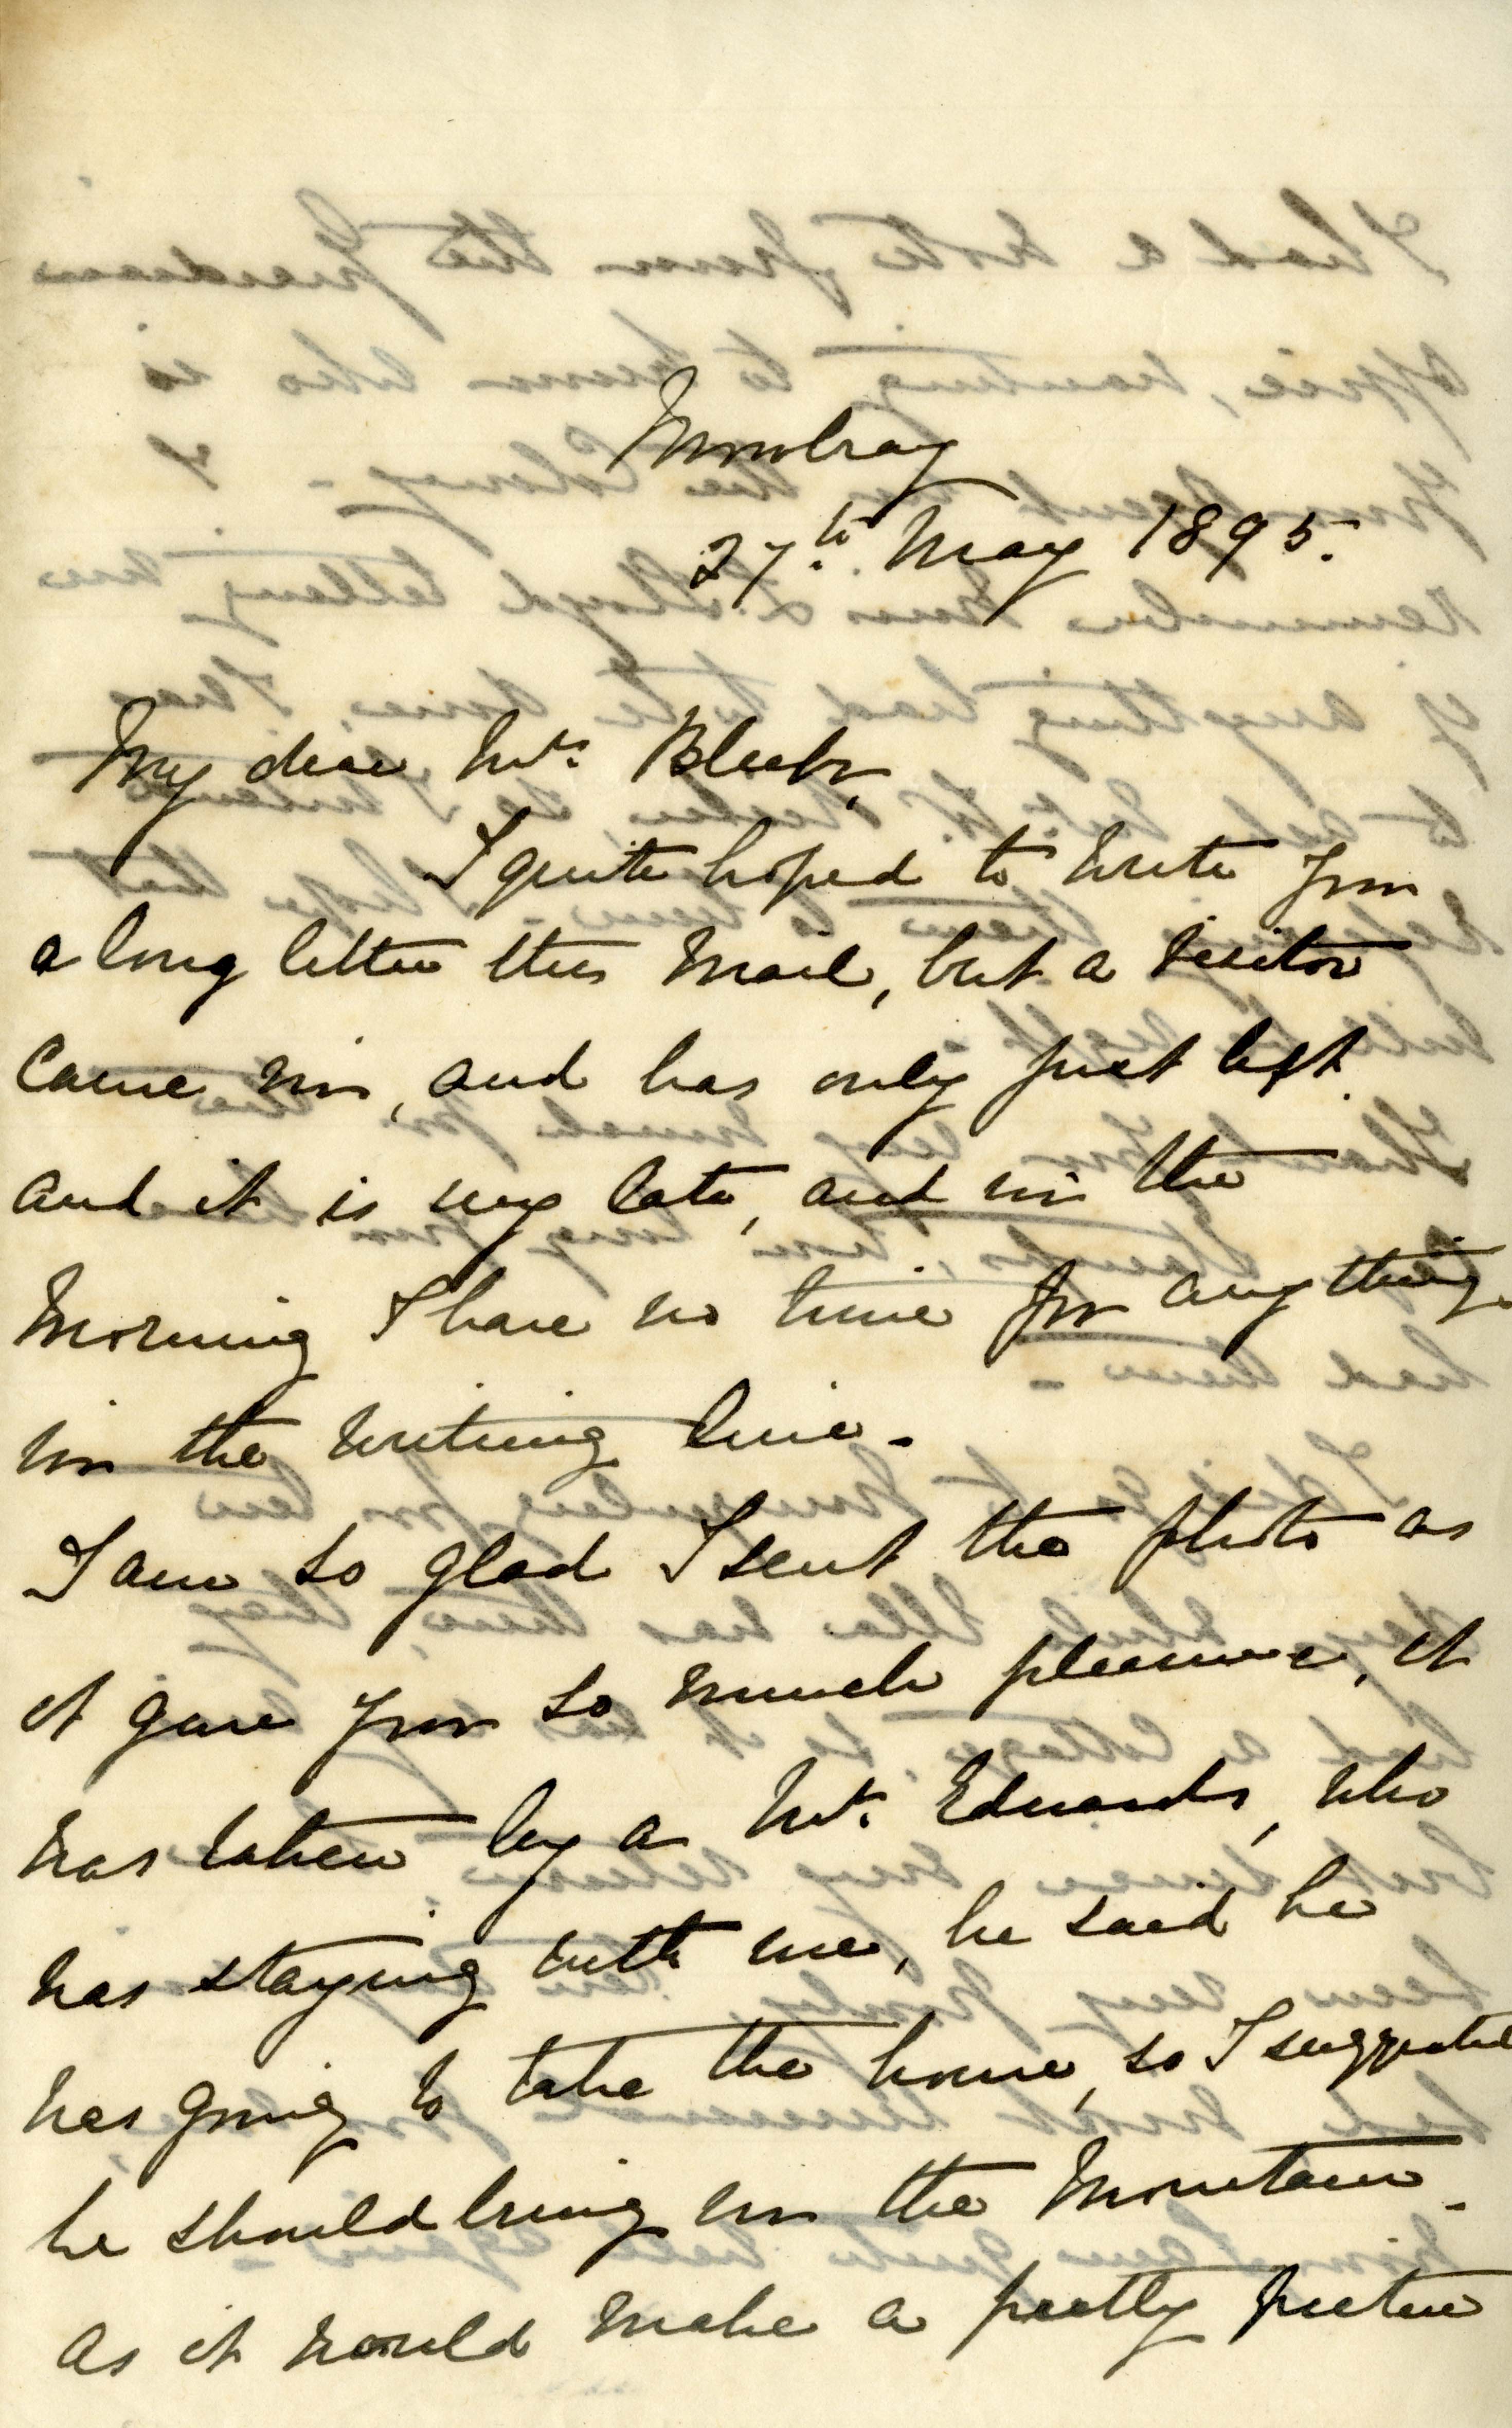 Mowbray
27th. May 1895.
My dear Mrs. Bleek,
I quite hoped to write you
a long letter this mail, but a visitor
came in, and has only just left.
and it is very late, and in the
morning I have no time for anything
in the writing line.
I am so glad I sent the photo as
it gave you so much pleasure, it
was taken by a Mr. Edwards, who
was staying with me, he said he
was going to take the house, so I suggested
he should bring in the mountain.
as it would make a pretty picture